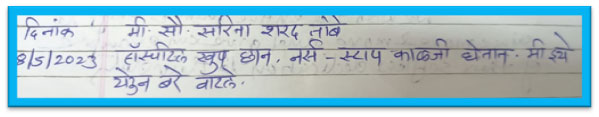 दिनांक मी. सौ. सरिता शरद तांबे
8/5/2023 हॉस्पीटल खुप छान. नर्स - स्टाप काळजी घेतात. मी इथे
येऊन बरे वाटले.